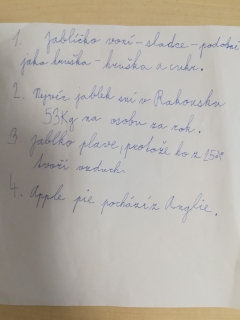 1. Jablíčko voní - sladce - podobně
jako hruška - hruška a cukr.
2. Nejvíc jablek sní v Rakousku
53Kg na osobu za rok.
3. jablko plave, protože ho z 25%
tvoří vzduch.
4. Apple pie pochází z Anglie.